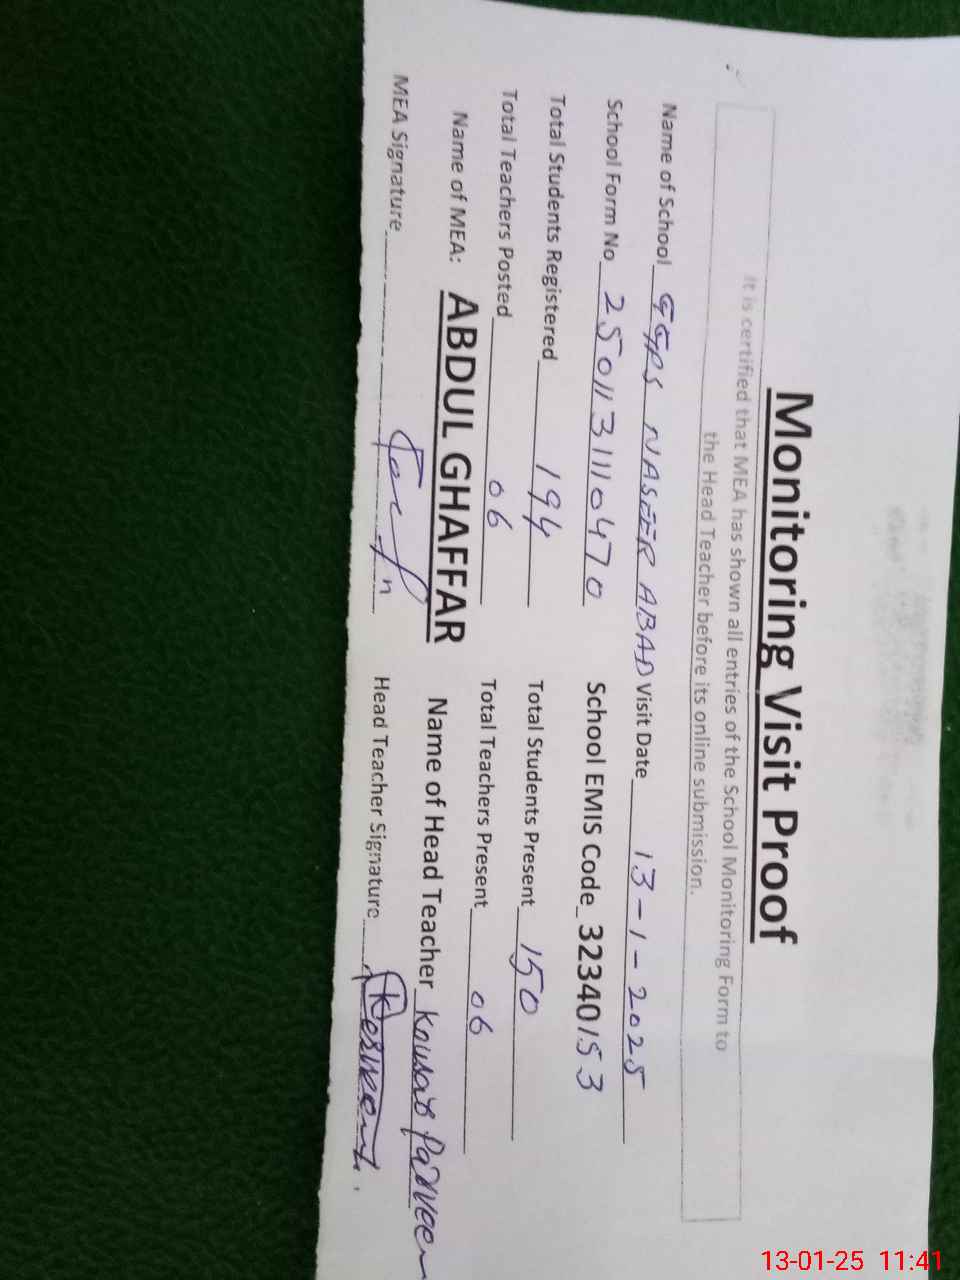 Monitoring Visit Proof
It is certified that MEA has shown all entries of the School Monitoring Form to
the Head Teacher before its online submission.
Name of School GGPS NASEER ABAD Visit Date 13-1-2025
School Form No 2501131110470 School EMIS Code 32340153
Total Students Registered 194 Total Students Present 150
Total Teachers Posted 06 Total Teachers Present 06
Name of MEA: ABDUL GHAFFAR Name of Head Teacher Kousar Parveen
MEA Signature Head Teacher Signature
13-01-25 11:41